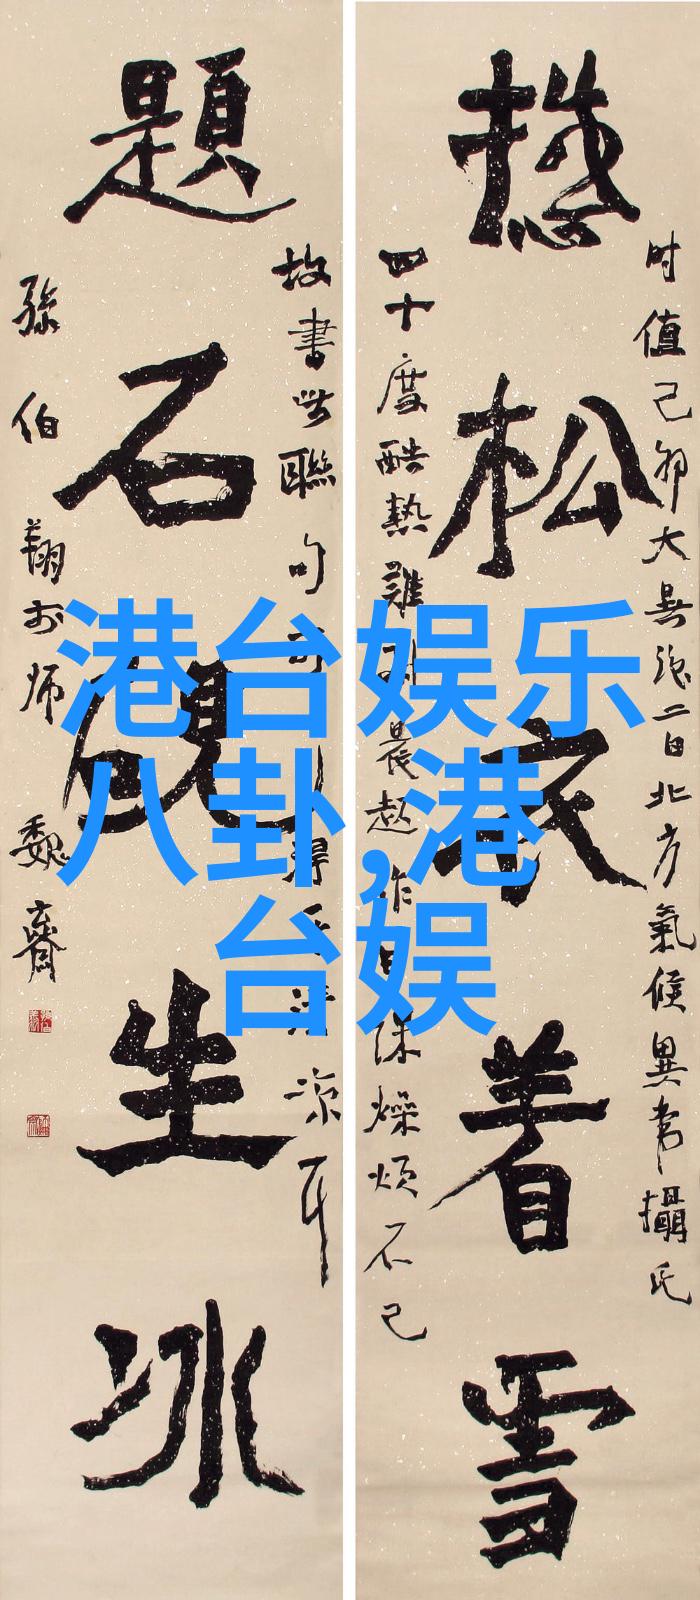 憇松衣着雪
时值己卯大暑後二日北方氣候異常攝氏
四十度酷熱難耐晨起作
燥煩不已
題石硯生冰
故書此聯句可
清凉耳
孫伯翔於師魏齋
港台娱乐
八卦,港
台娱